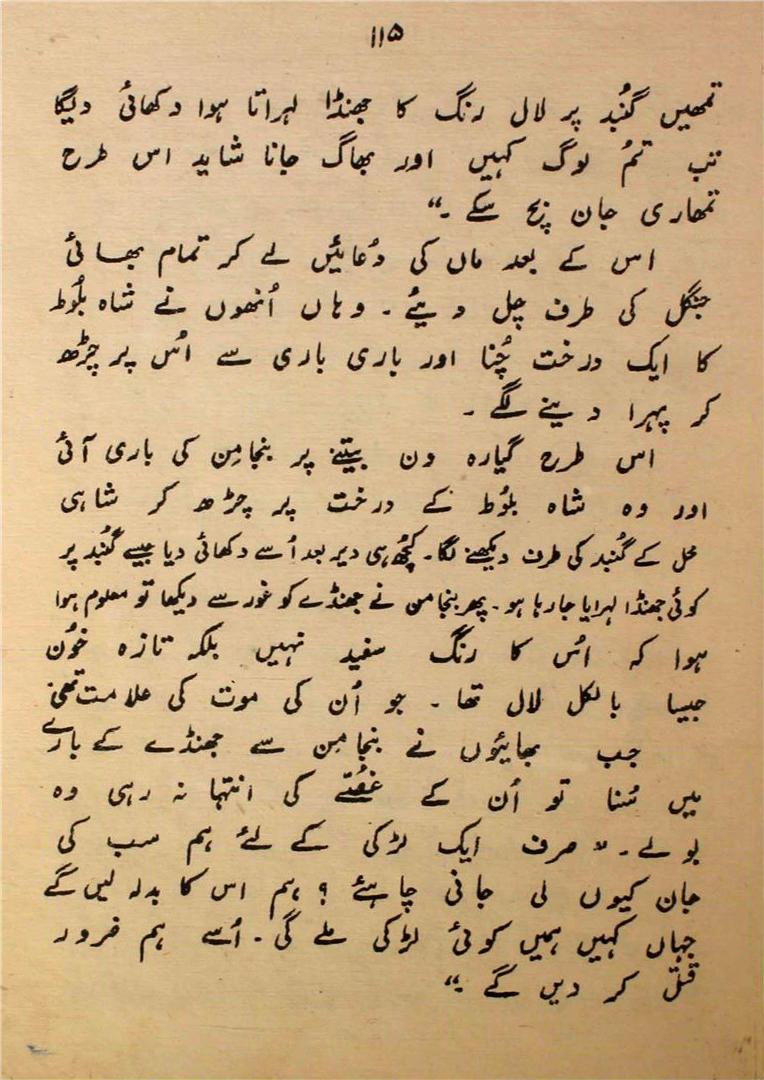 ۱۱۵
تمھیں گنُبد پر لال رنگ کا جھنڈا لہراتا ہوا دکھائی دیگا
تب تمُ لوگ کہیں اور بھاگ جانا شاید اس طرح
تمھاری جان بچ سکے ۔"
اس کے بعد ماں کی دُعائیں لے کر تمام بھائی
جنگل کی طرف چل دیئے ۔ وہاں اُنھوں نے شاہ بلُوط
کا ایک درخت چُنا اور باری باری سے اُس پر چڑھ
کر پہرا دینے لگے ۔
اس طرح گیارہ دن بیتنے پر بنجامِن کی باری آئی
اور وہ شاہ بلُوط کے درخت پر چڑھ کر شاہی
محل کے گنُبد کی طرف دیکھنے لگا۔ کچُھ ہی دیر بعد اُسے دکھائی دیا جیسے گنُبد پر
کوئی جھنڈا لہرایا جارہا ہو ۔ پھر بنجامن نے جھنڈے کو غور سے دیکھا تو معلوم ہوا
ہوا کہ اُس کا رنگ سفید نہیں بلکہ تازہ خوُن
جیسا بالکل لال تھا ۔ جو اُن کی موت کی علامت تھی
جب بھائیوں نے بنجامِن سے جھنڈے کے بارے
میں سُنا تو اُن کے غصّے کی انتہا نہ رہی وہ
بولے ۔ "صرف ایک لڑکی کے لئے ہم سب کی
جان کیوں لی جانی چاہئے ؟ ہم اس کا بدلہ لیں گے
جہاں کہیں ہمیں کوئی لڑکی ملے گی ۔ اُسے ہم ضرور
قتل کر دیں گے ۔"